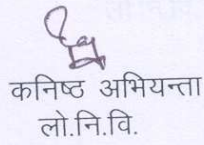 कनिष्ठ अभियन्ता
लो.नि.वि.